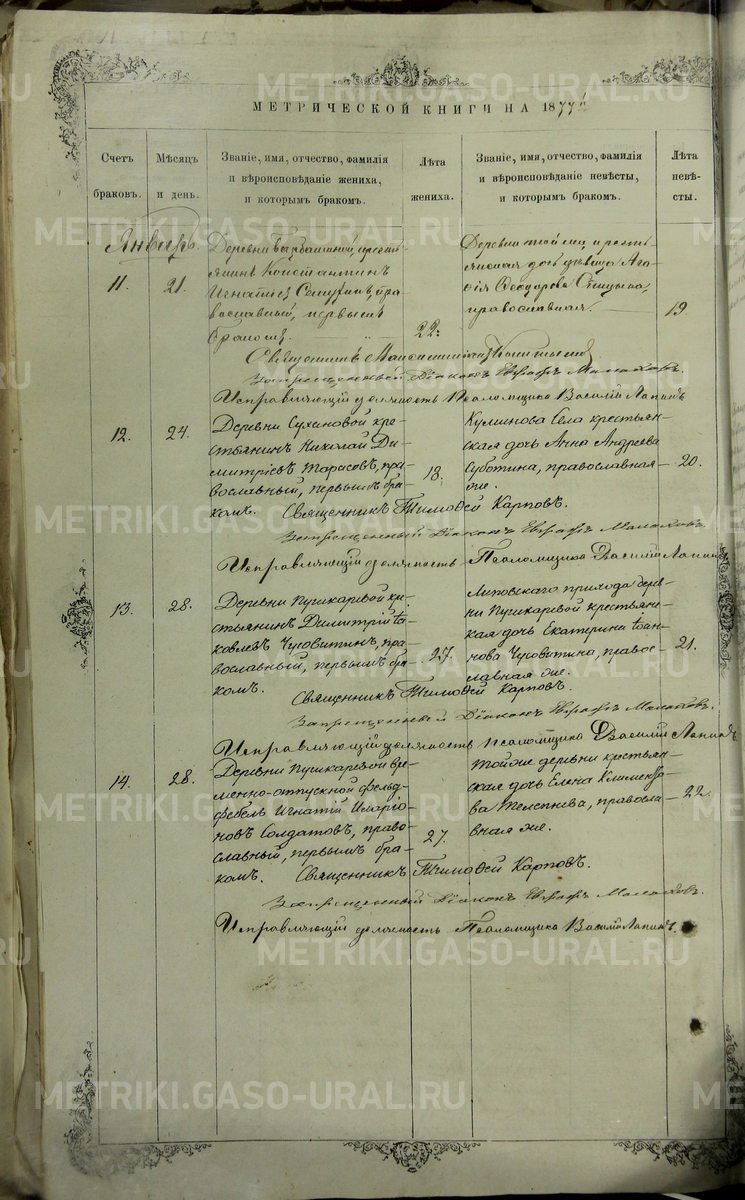 МЕТРИЧЕСКОЙ КНИГИ НА 1877й
Счетъ браковъ.
Мѣсяцъ и день.
Званіе, имя, отчество, фамилія
и вѣроисповѣданіе жениха,
и которымъ бракомъ.
Лѣта жениха.
Званіе, имя, отчество, фамилія
и вѣроисповѣданіе невѣсты,
и которымъ бракомъ.
Лѣта невѣсты.
Январь.
11.
21.
Деревни крестьянинъ
Константинъ
Игнатіев православный,
первымъ
бракомъ.
22.
Деревни той же, крестьянская
дочь дѣвица Агафія
Ѳеодорова Спицына,
православная.
19.
Священникъ Максимиліанъ
Запрещенный Діаконъ Евграфъ Малаховъ.
Исправляющій должность Псаломщика Василій Лапинъ
12.
24.
Деревни Сухановой кре-
стьянинъ Николай Ди-
митріевъ Тарасовъ, пра-
вославный, первымъ бра-
комъ.
18.
Кулинова Села крестьян-
ская дочь Анна Андреева
Суботина, православная
же.
20.
Священникъ Тимоѳей Карповъ.
Запрещенный Діаконъ Евграфъ Малаховъ.
Исправляющій должность Псаломщика Василій Лапинъ
13.
28.
Деревни Пушкаревой кре-
стьянинъ Димитрій Іа-
ковлевъ Чусовитинъ, пра-
вославный, первымъ бра-
комъ.
27.
Липовскаго прихода дерев-
ни Пушкаревой крестьян-
ская дочь Екатерина Іоан-
нова Чусовитина, правос-
лавная же.
21.
Священникъ Тимоѳей Карповъ.
Запрещенный Діаконъ Евграфъ Малаховъ.
Исправляющій должность Псаломщика Василій Лапинъ
14.
28.
Деревни Пушкаревой вре-
менно-отпускной фельд-
фебель Игнатій Иларіо-
новъ Солдатовъ, право-
славный, первымъ бра-
комъ.
27.
Тойже деревни крестьян-
ская дочь Елена Климентова
Телепнева, правосла-
вная же.
22.
Священникъ Тимоѳей Карповъ.
Запрещенный Діаконъ Евграфъ Малаховъ.
Исправляющій должность Псаломщика Василій Лапинъ.
METRIKI.GASO-URAL.RU